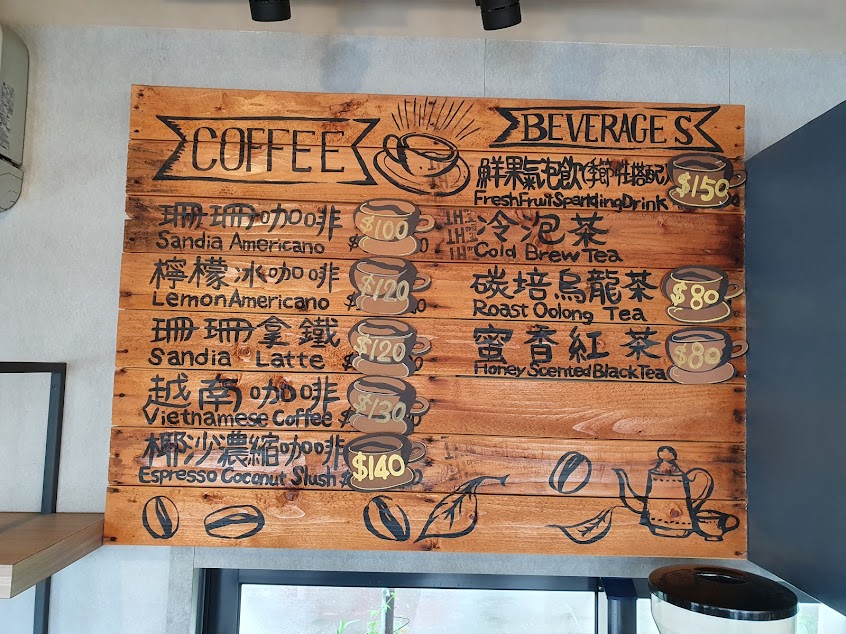 COFFEE
珊珊咖啡
Sandia Americano
$100
檸檬冰咖啡
Lemon Americano
$120
珊珊拿鐵
Sandia Latte
$120
越南咖啡
Vietnamese Coffee
$130
椰沙濃縮咖啡
Espresso Coconut Slush
$140
BEVERAGES
鮮果氣泡飲(季節性搭配)
Fresh Fruit Sparkling Drink
$150
冷泡茶
Cold Brew Tea
碳培烏龍茶
Roast Oolong Tea
$80
蜜香紅茶
Honey Scented Black Tea
$80